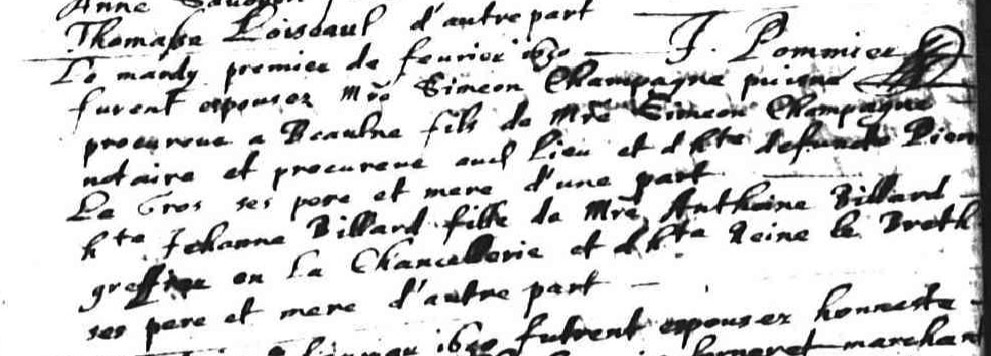 Anne
Thomasse Loiseaul d'autre part
J. Pommier
Le mardy premier de febvrier 1650
furent espousez Mre Simeon Champagne puisné
procureur a Beaulne fils de Mre Simeon Champagne
notaire et procureur aud lieu et d hte defuncte
Le Gros ses pere et mere d'une part
hte Jehanne Billard fille de Mre Anthoine Billard
greffier en la Chancellerie et d hte Reine le Breth
ses pere et mere d'autre part
1650 furent espousez honneste
marchan